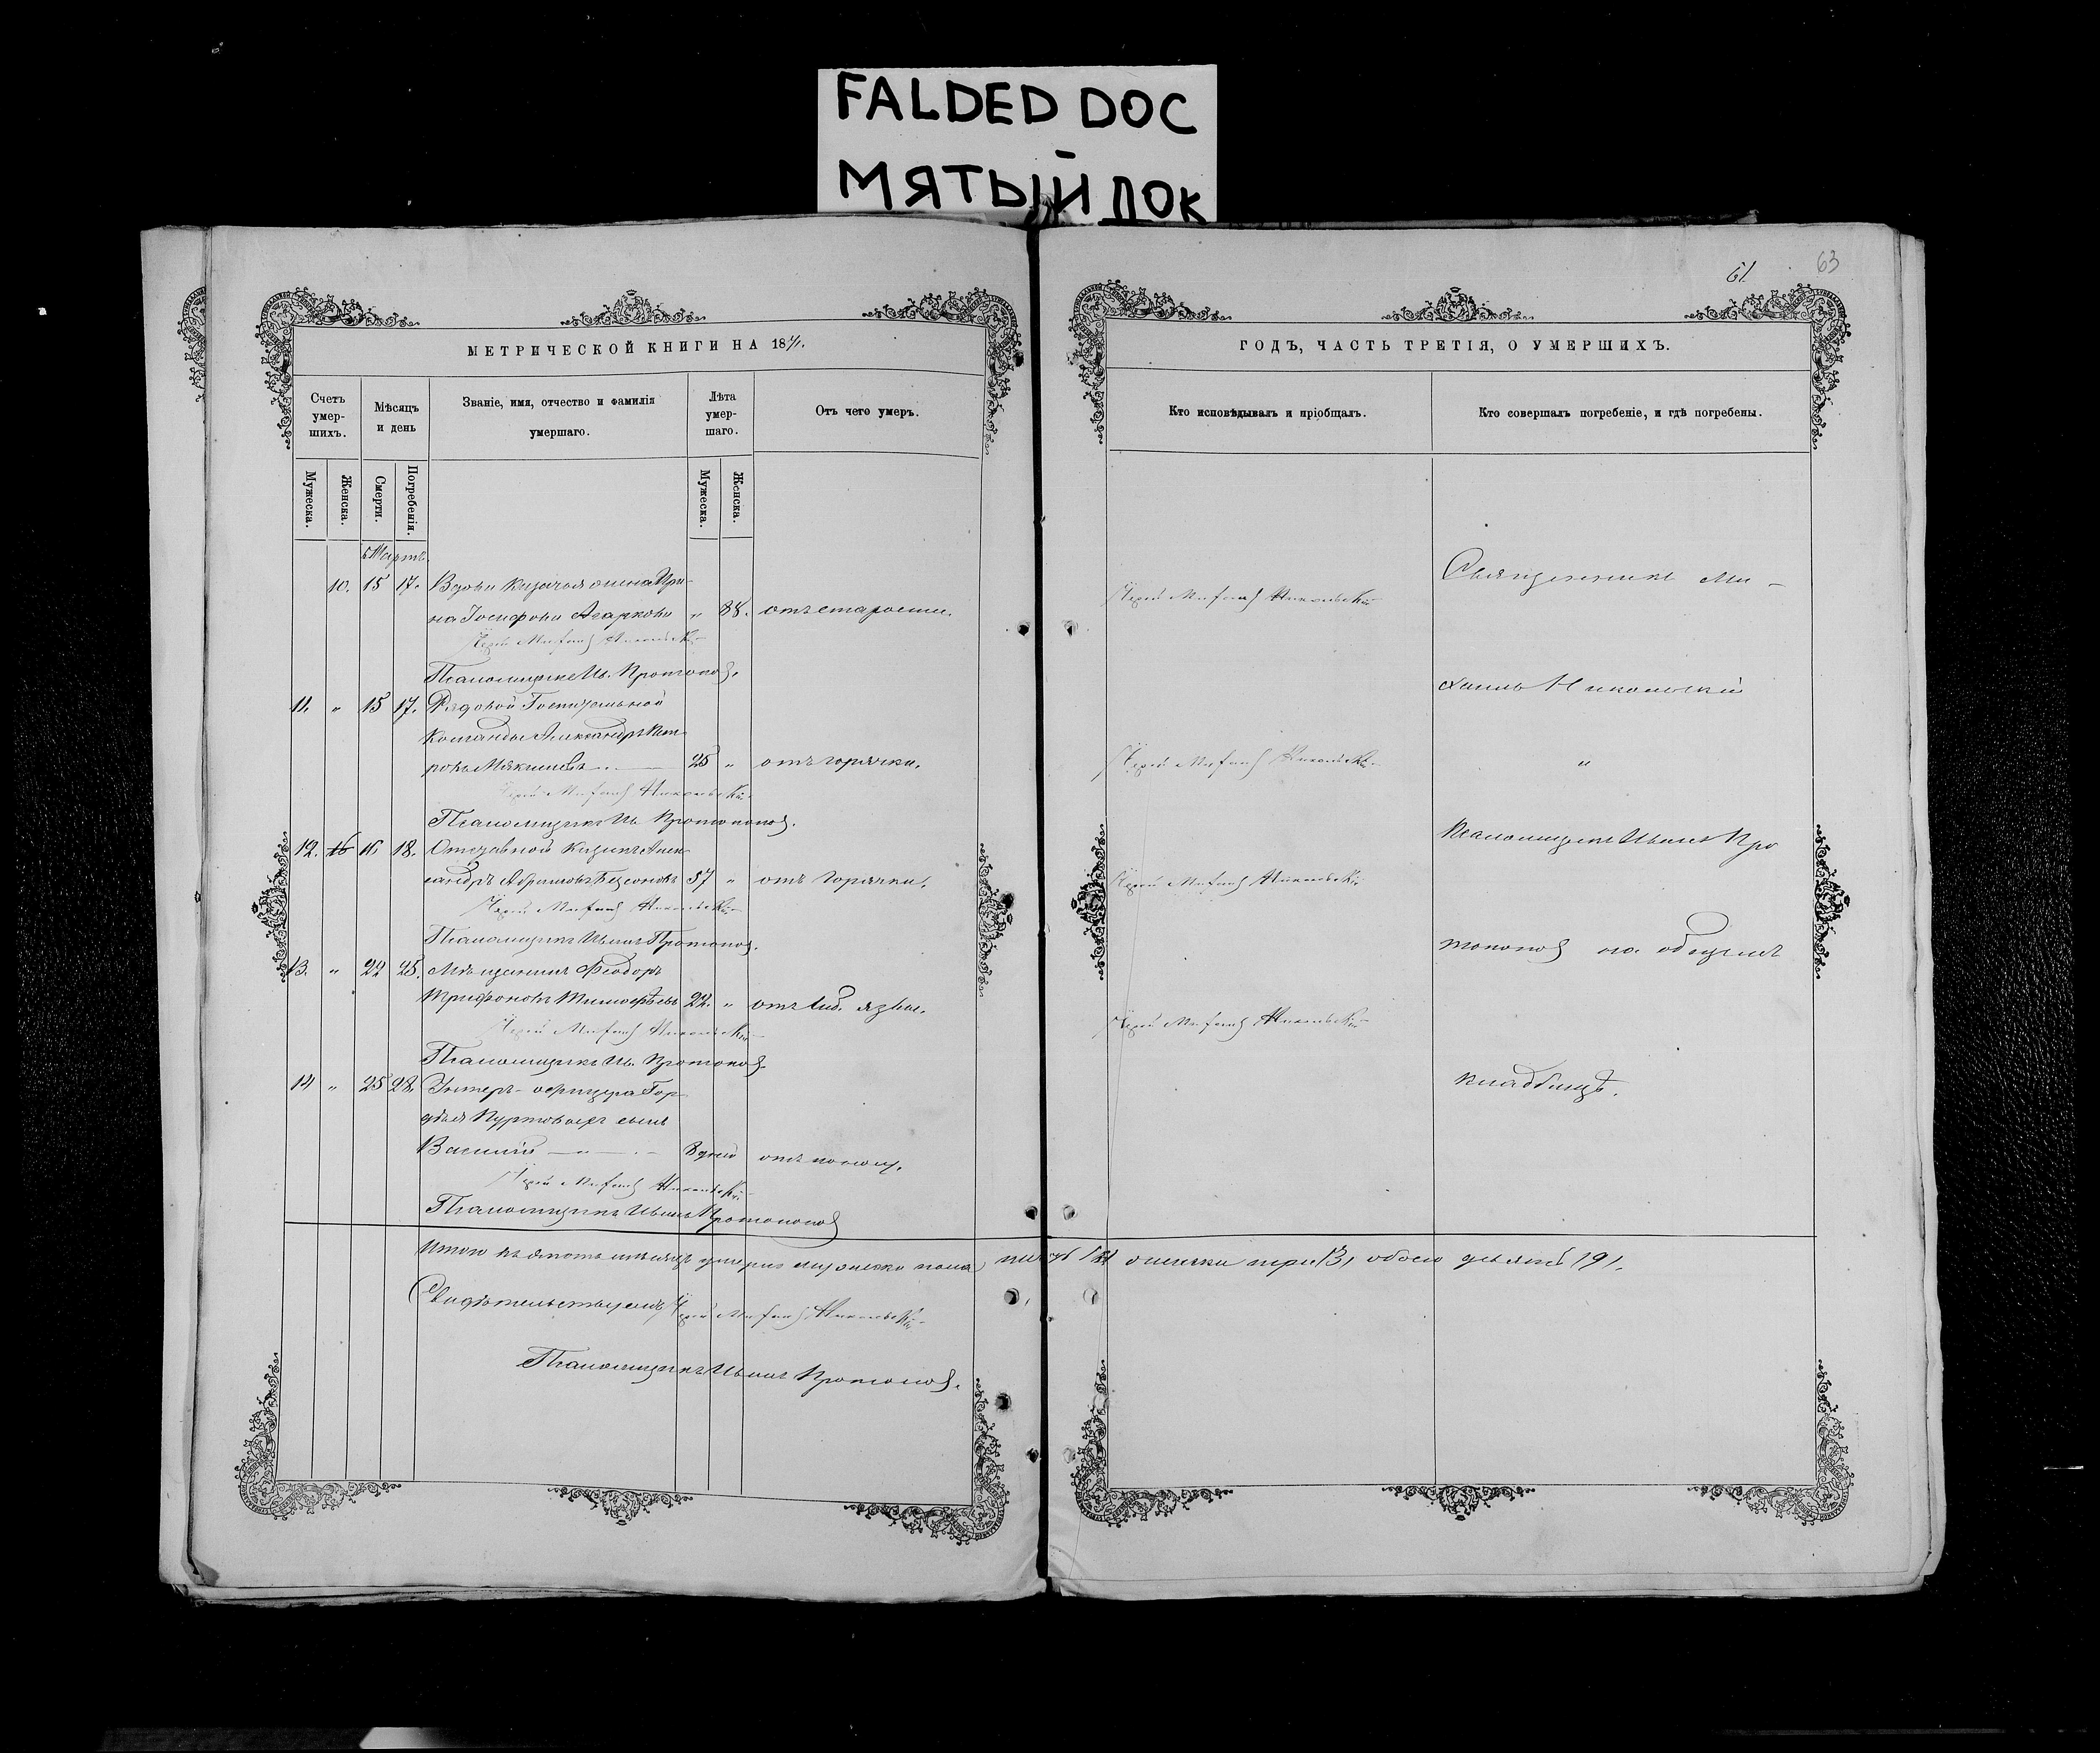 FALDED DOC
МЯТЫЙ ДОК
61.
63
МЕТРИЧЕСКОЙ КНИГИ НА 1871.
Счетъ умер-шихъ.
Мѣсяцъ и день
Званіе, имя, отчество и фамилія умершаго.
Лѣта умер-шаго.
Отъ чего умеръ.
Мужеска.
Женска.
Смерти.
Погребенія.
Мужеска.
Женска.
Мартъ.
10. 15 17. Вдова казачья жена Ири-
на Іосифова Агаркова „ 88. отъ старости.
Іерей Михаилъ Никольскій
Псаломщикъ Ив. Протопоповъ.
11. „ 15 17. Рядовой Госпитальной
Команды Александръ Пет-
ровъ Мякишевъ 25 „ отъ горячки.
Іерей Михаилъ Никольскій
Псаломщикъ Ив. Протопоповъ.
12. 16 16 18. Отставной Казакъ Алек-
сандръ Абрамовъ 57 „ отъ горячки.
Іерей Михаилъ Никольскій
Псаломщикъ Иванъ Протопоповъ.
13. „ 22 25. Мѣщанинъ Ѳеодоръ
Трифоновъ Тимофѣевъ 22. „ отъ язвы.
Іерей Михаилъ Никольскій
Псаломщикъ Ив. Протопоповъ.
14 „ 25 28. Унтеръ-офицера Гор-
дѣя сынъ
Василій 8 дней отъ поносу.
Іерей Михаилъ Никольскій
Псаломщикъ Иванъ Протопоповъ
Итого въ мартѣ мѣсяцѣ умерло мужеска пола женска три /3/ обоего девять /9/.
Свидѣтельствуемъ Іерей Михаилъ Никольскій
Псаломщикъ Иванъ Протопоповъ.
ГОДЪ, ЧАСТЬ ТРЕТІЯ, О УМЕРШИХЪ.
Кто исповѣдывалъ и пріобщалъ.
Кто совершалъ погребеніе, и гдѣ погребены.
Священникъ Ми-
Іерей Михаилъ Никольскій
хаилъ Никольскій
Іерей Михаилъ Никольскій „
Псаломщикъ Иванъ Про
Іерей Михаилъ Никольскій
топоповъ на общемъ
Іерей Михаилъ Никольскій
кладбищѣ.